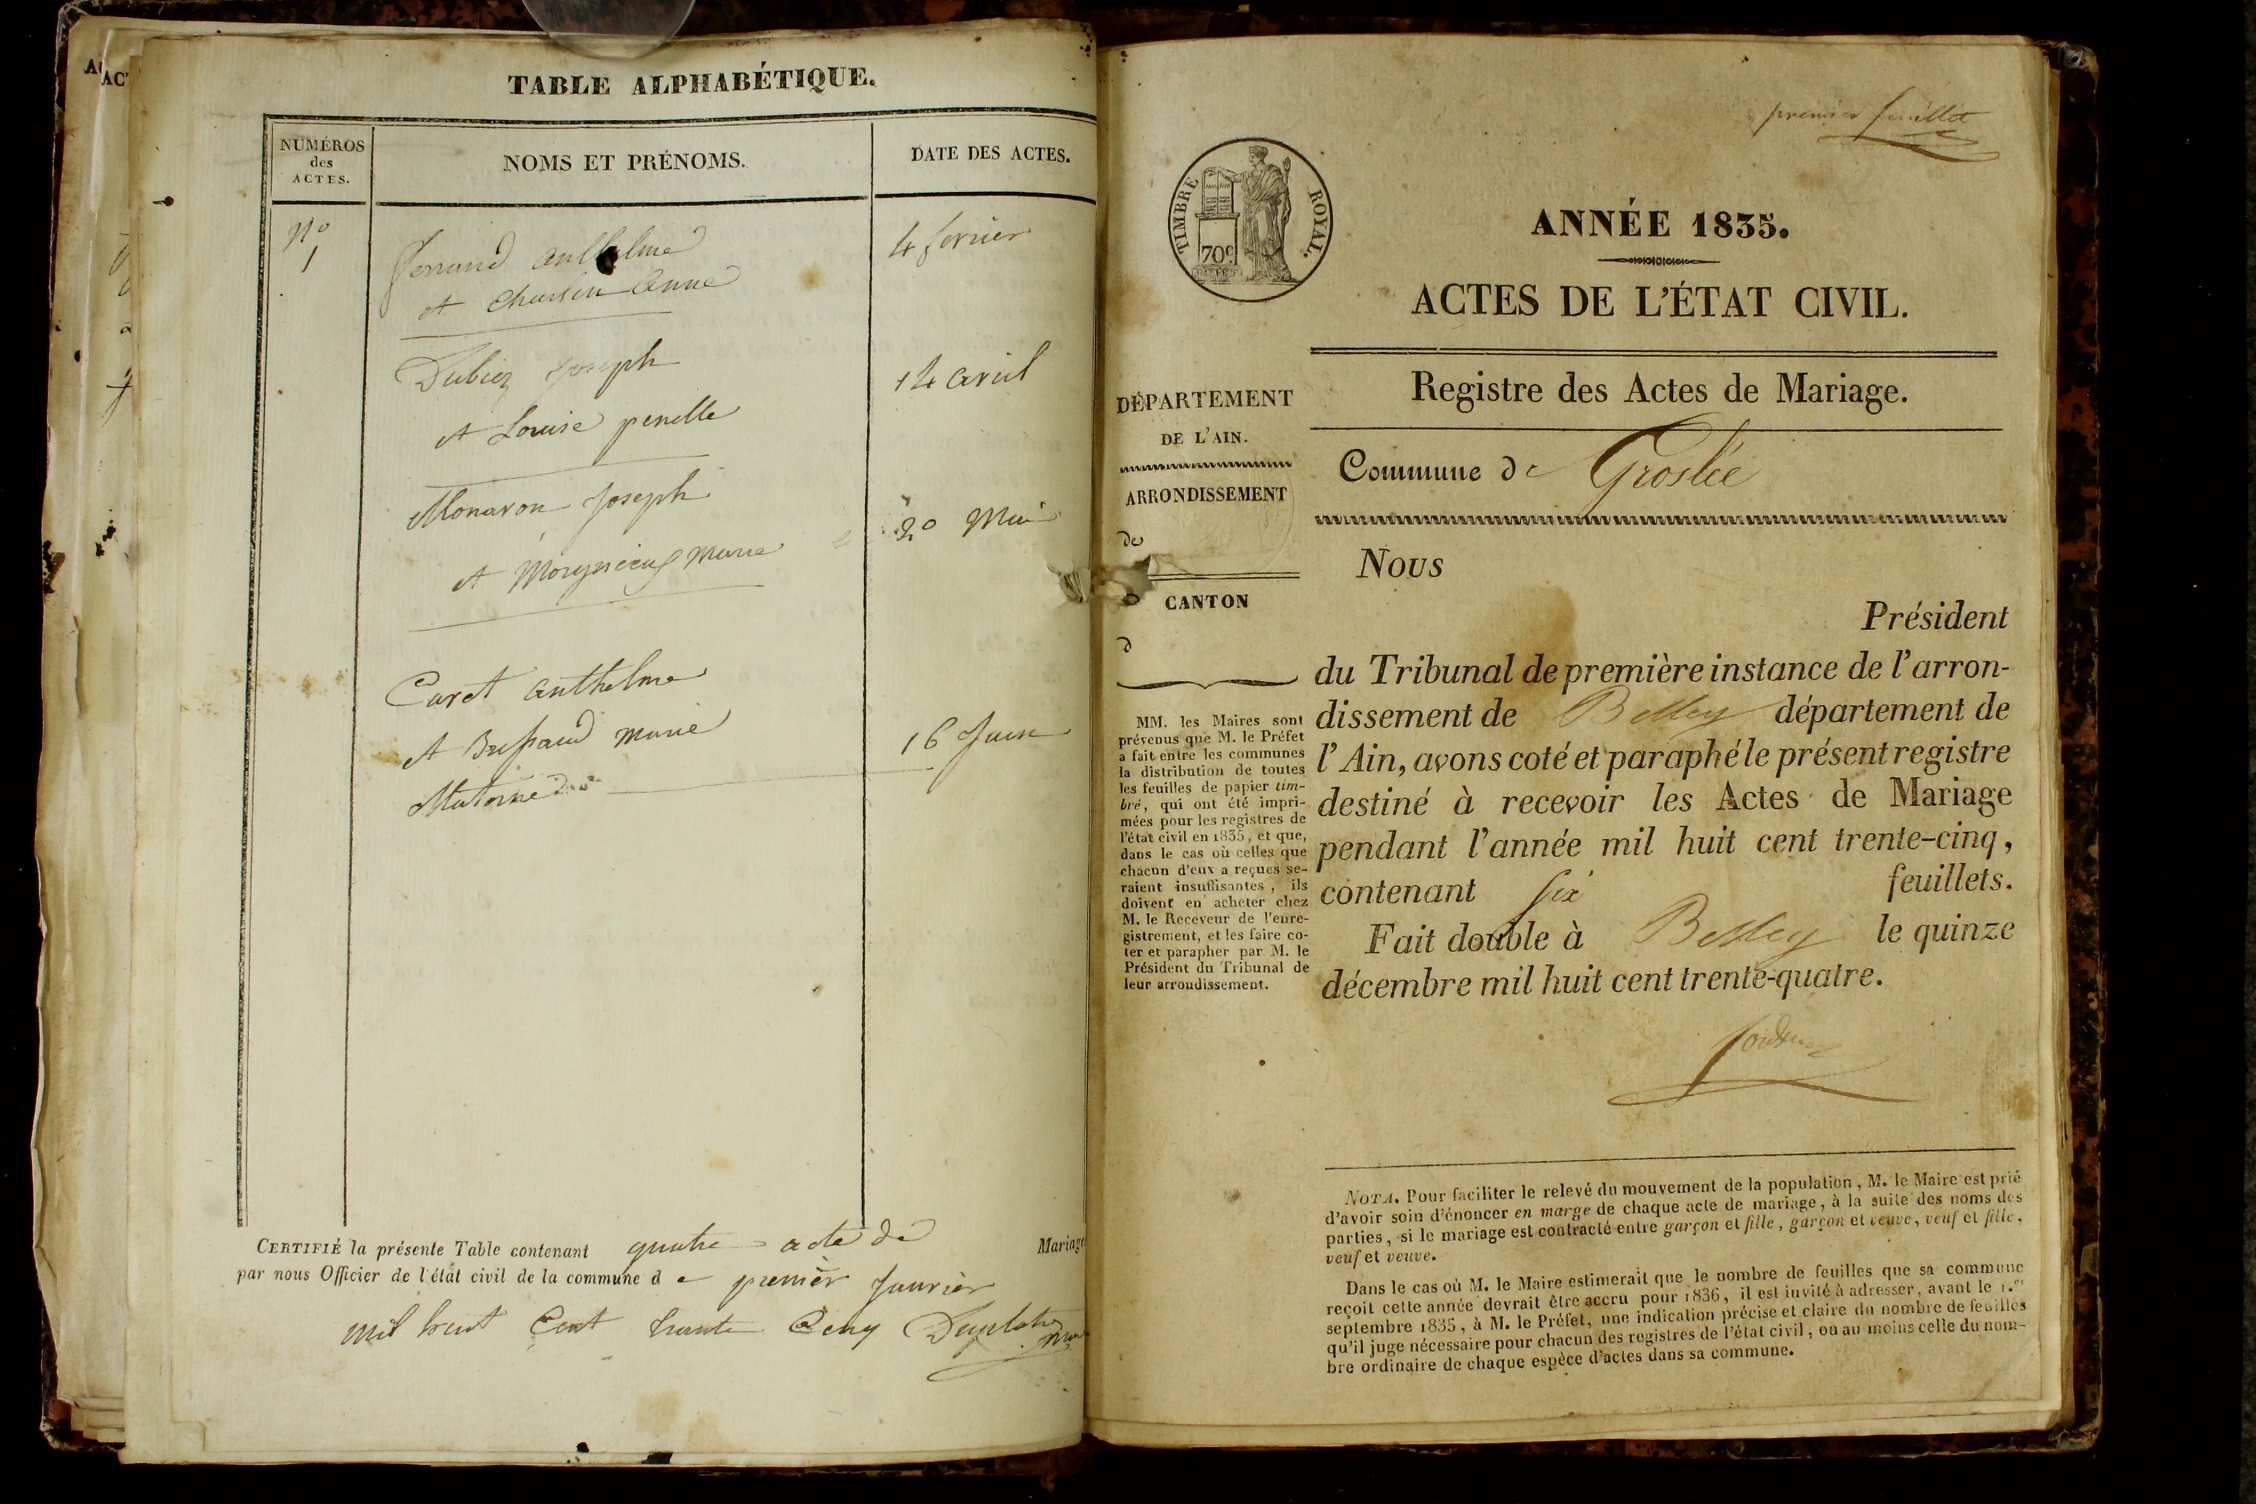 TABLE ALPHABÉTIQUE.
NUMÉROS
des
ACTES.
NOMS ET PRÉNOMS.
DATE DES ACTES.
N.o
1
anthelme
4 fevrier
et Anne
Dubiez Joseph
14 avril
et Louise
Monavon Joseph
20 Mai
et marie
Caret anthelme
et marie
16 Juin
CERTIFIÉ la présente Table contenant quatre acte de Mariage
par nous Officier de l'état civil de la commune d e premier Janvier
mil huit Cent trente Cenq
premier feuillet
TIMBRE ROYAL.
70c
ANNÉE 1835.
ACTES DE L'ÉTAT CIVIL.
Registre des Actes de Mariage.
DÉPARTEMENT
DE L'AIN.
ARRONDISSEMENT
de
CANTON
d
Commune de Groslée
MM. les Maires sont
prévenus que M. le Préfet
a fait entre les communes
la distribution de toutes
les feuilles de papier tim-
bré, qui ont été impri-
mées pour les registres de
l'état civil en 1835, et que,
dans le cas où celles que
chacun d'eux a reçues se-
raient insuffisantes, ils
doivent en acheter chez
M. le Receveur de l'enre-
gistrement, et les faire co-
ter et parapher par M. le
Président du Tribunal de
leur arrondissement.
Nous
Président
du Tribunal de première instance de l'arron-
dissement de Belley département de
l'Ain, avons coté et paraphé le présent registre
destiné à recevoir les Actes de Mariage
pendant l'année mil huit cent trente-cinq,
contenant six feuillets.
Fait double à Belley le quinze
décembre mil huit cent trente-quatre.
NOTA. Pour faciliter le relevé du mouvement de la population, M. le Maire est prié
d'avoir soin d'énoncer en marge de chaque acte de mariage, à la suite des noms des
parties, si le mariage est contracté entre garçon et fille, garçon et veuve, veuf et fille,
veuf et veuve.
Dans le cas où M. le Maire estimerait que le nombre de feuilles que sa commune
reçoit cette année devrait être accru pour 1836, il est invité à adresser, avant le 1.er
septembre 1835, à M. le Préfet, une indication précise et claire du nombre de feuilles
qu'il juge nécessaire pour chacun des registres de l'état civil, ou au moins celle du nom-
bre ordinaire de chaque espèce d'actes dans sa commune.